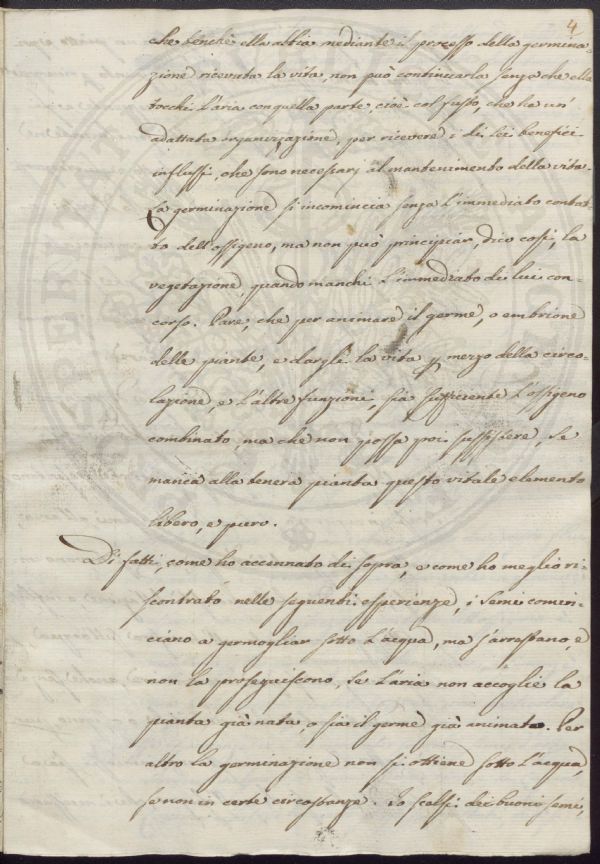 4
che benchè ella abbia mediante il processo della germina-
zione ricevuta la vita non può continuarla senza che ella
tocchi l'aria con quella parte, cioè col fusto, che ha un'
adattata organizzazione, per ricevere i di lei benefici
influssi, che sono necessarj al mantenimento della vita.
La germinazione si incomincia senza l'immediato contat-
to dell'ossigeno, ma non può principiar, dico così, la
vegetazione, quando manchi l'immediato di lui con-
corso. Pare, che per animare il germe, o embrione
delle piante, e dargli la vita p mezzo della circo-
lazione, e l'altre funzioni, sia sufficiente l'ossigeno
combinato, ma che non possa poi sussistere, se
manca alla tenera pianta questo vitale elemento
libero, e puro.
Di fatti, come ho accennato di sopra, e come ho meglio ri-
scontrato nelle seguenti esperienze, i semi comin-
ciano a germogliar sotto l'acqua, ma s'arrestano, e
non la proseguiscono, se l'aria non accoglie la
pianta già nata, o sia il germe già animato. Per
altro la germinazione non si ottiene sotto l'acqua,
se non in certe circostanze. Io scelsi dei buoni semi,